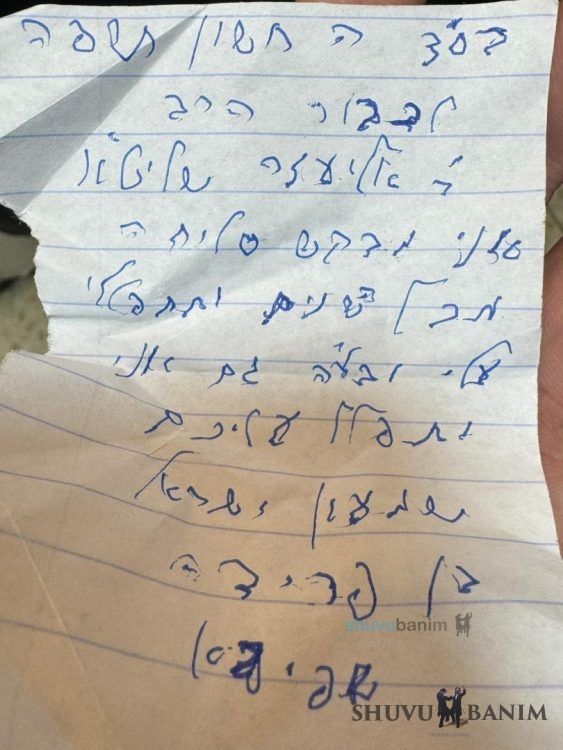 בס"ד ה חשון תשפה
לכבוד הרב
ר אליעזר שליט"א
אני מבקש סליחה
מכל שנים ותתפללי
עלי ובע"ה גם אני
ותפלל עליכם
שמעון ישראל
בן פרידה
shuvubanim
SHUVU BANIM